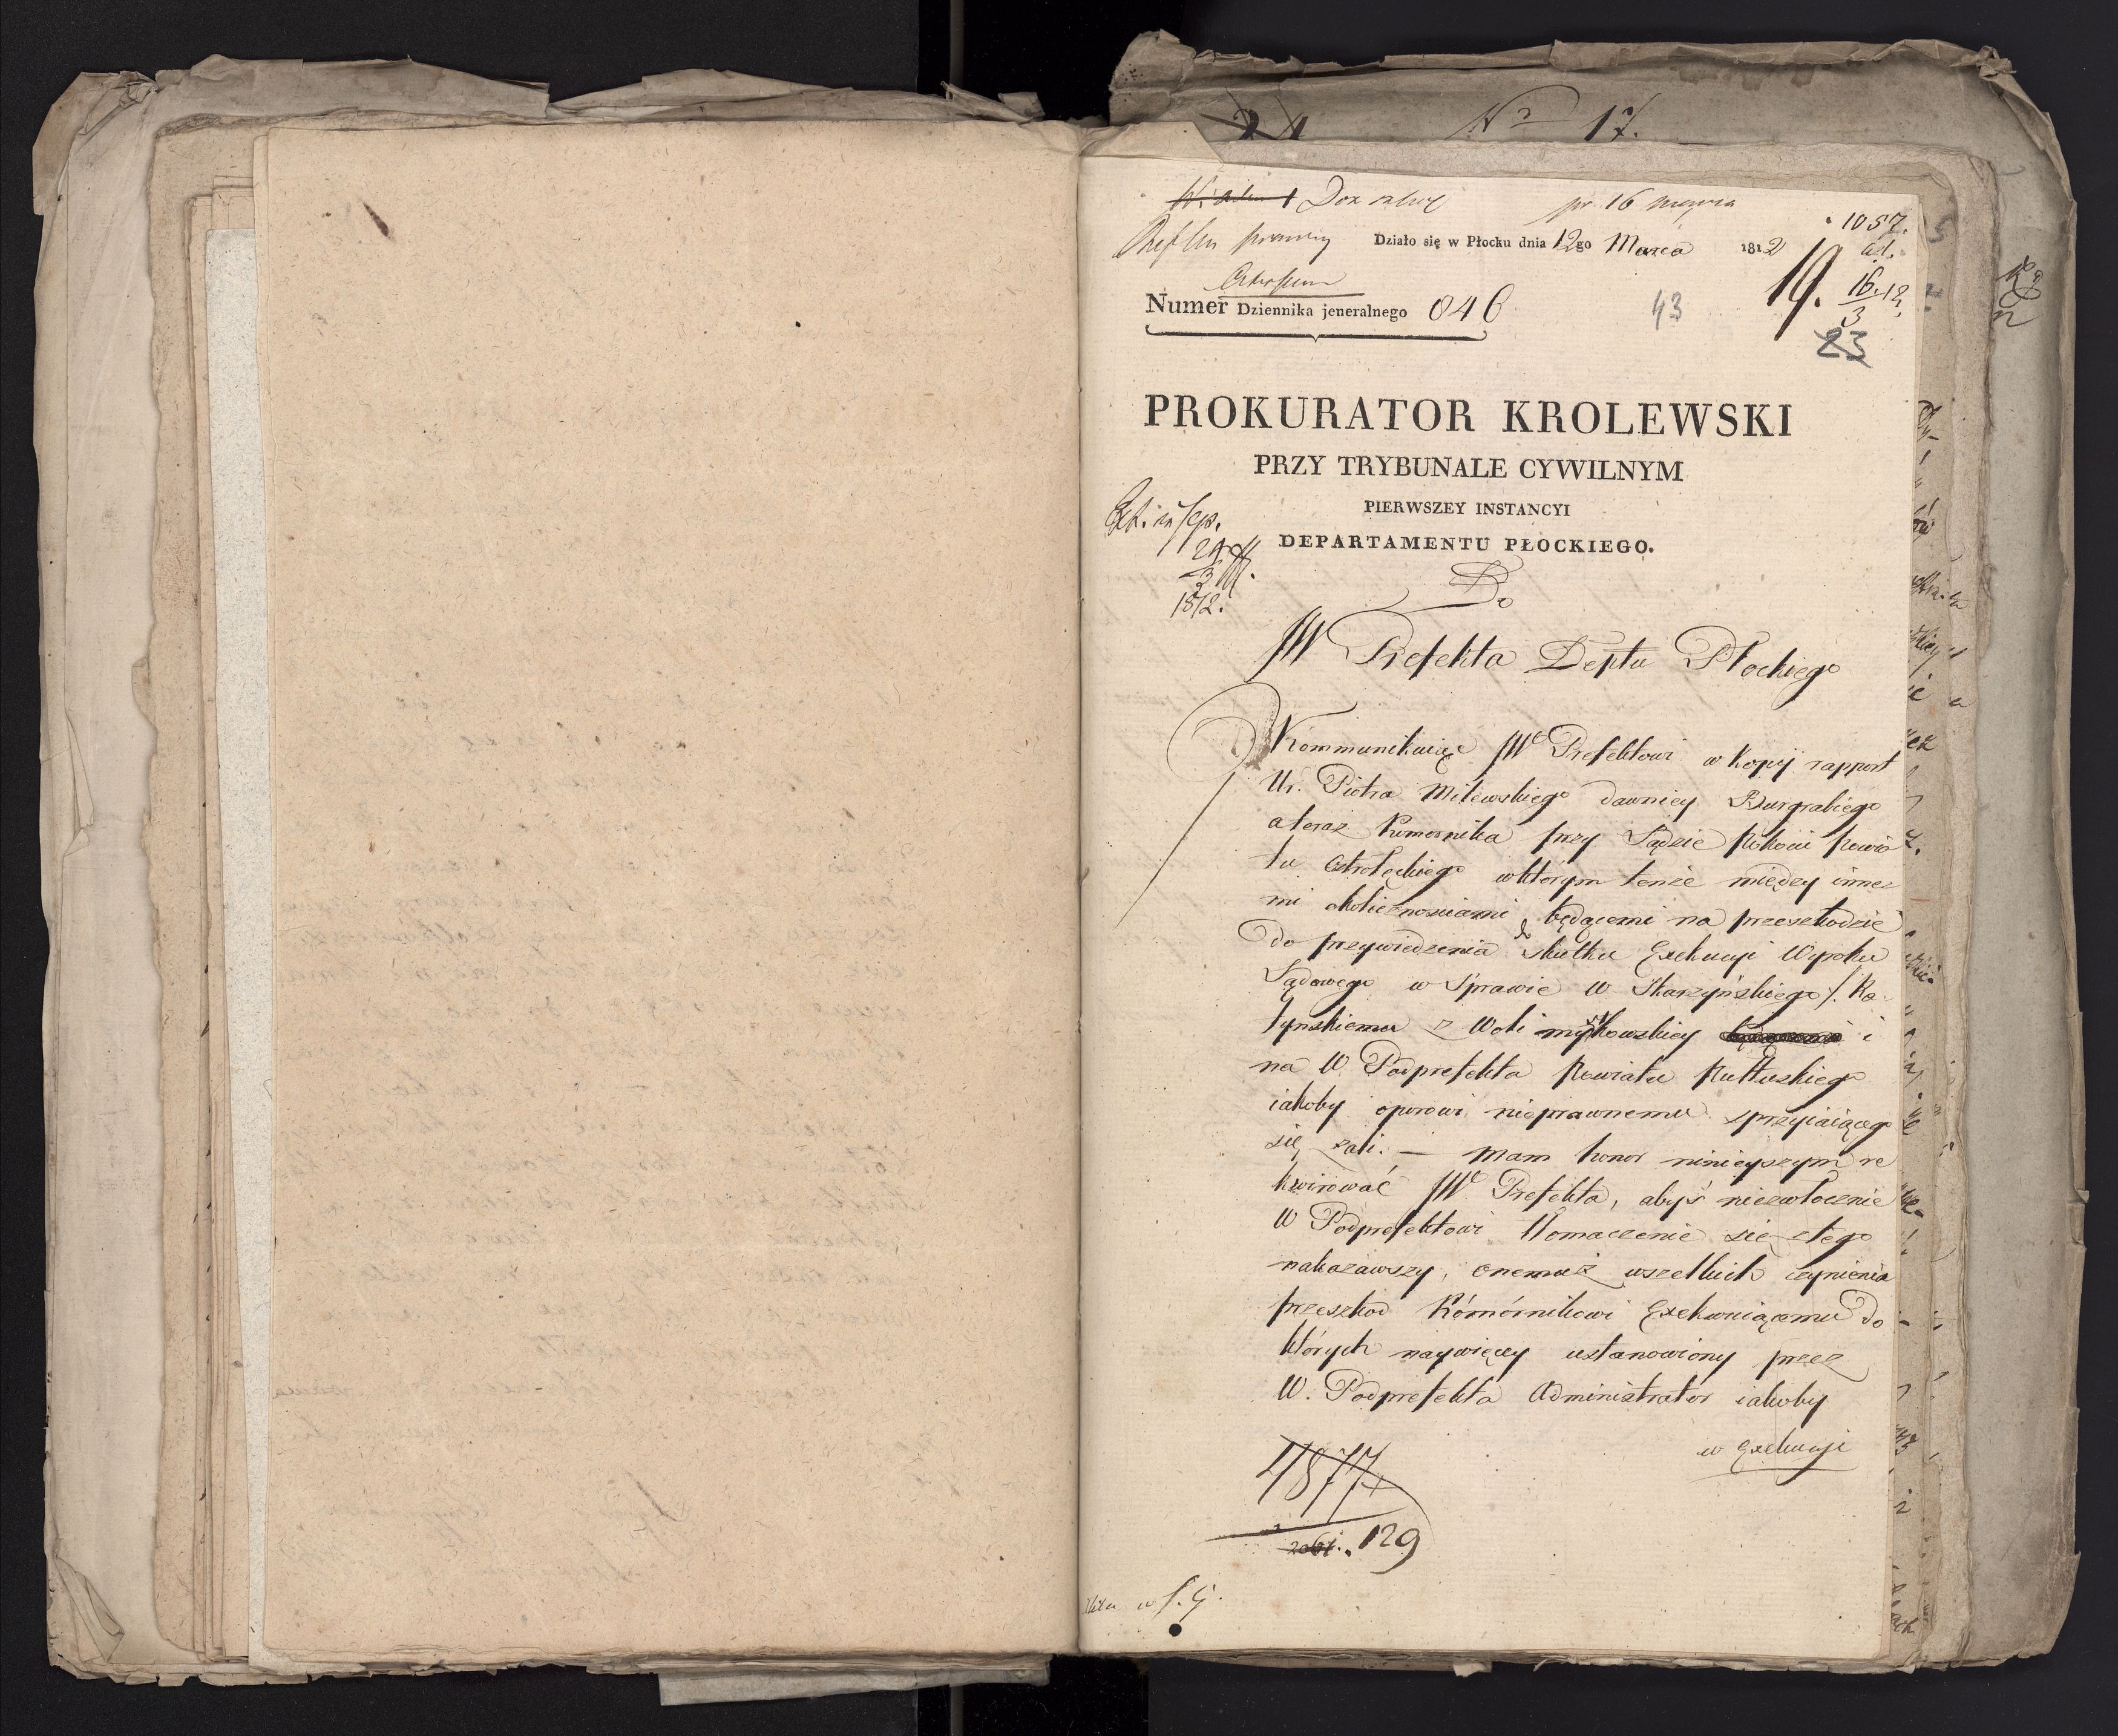 24 Nro 17.
pr. 16
1057.
Działo się w Płocku dnia 12go Marca 1812
ad.
19.
16.12.
3
Numer Dziennika jeneralnego 846
43
23
PROKURATOR KROLEWSKI
PRZY TRYBUNALE CYWILNYM
PIERWSZEY INSTANCYI
DEPARTAMENTU PŁOCKIEGO.
24
3
1812.
Do
JW Prefekta Deptu Płockiego
Kommunikuiąc JWu Prefektowi w kopij rapport
Ur. Piotra Milewskiego dawniey Burgrabiego
a teraz Komornika przy Sądzie Pokoiu Powia
tu Ostrołęckiego w którym tenże między inne
mi okolicznosciami będącemi na przeszkodzie
do przywiedzenia do skutku Exekucyi Wyroku
Sądowego w Sprawie W Skarzyńskiego /. Ka
tynskiemu z Woli i
na W Podprefekta Powiatu Pułtuskiego
iakoby oporowi nieprawnemu sprzyiaiącego
się żali. — Mam honor ninieyszym re
kwirować JWo Prefekta, abyś niezwłocznie
W Podprefektowi tłomaczenie się z tego
nakazawszy, onemuż wszelkich czynienia
przeszkod Kómórnikowi Exekwuiącemu do
których naywięcey ustanowiony przez
W. Podprefekta Administrator iakoby
w Exekucyi
4877
129